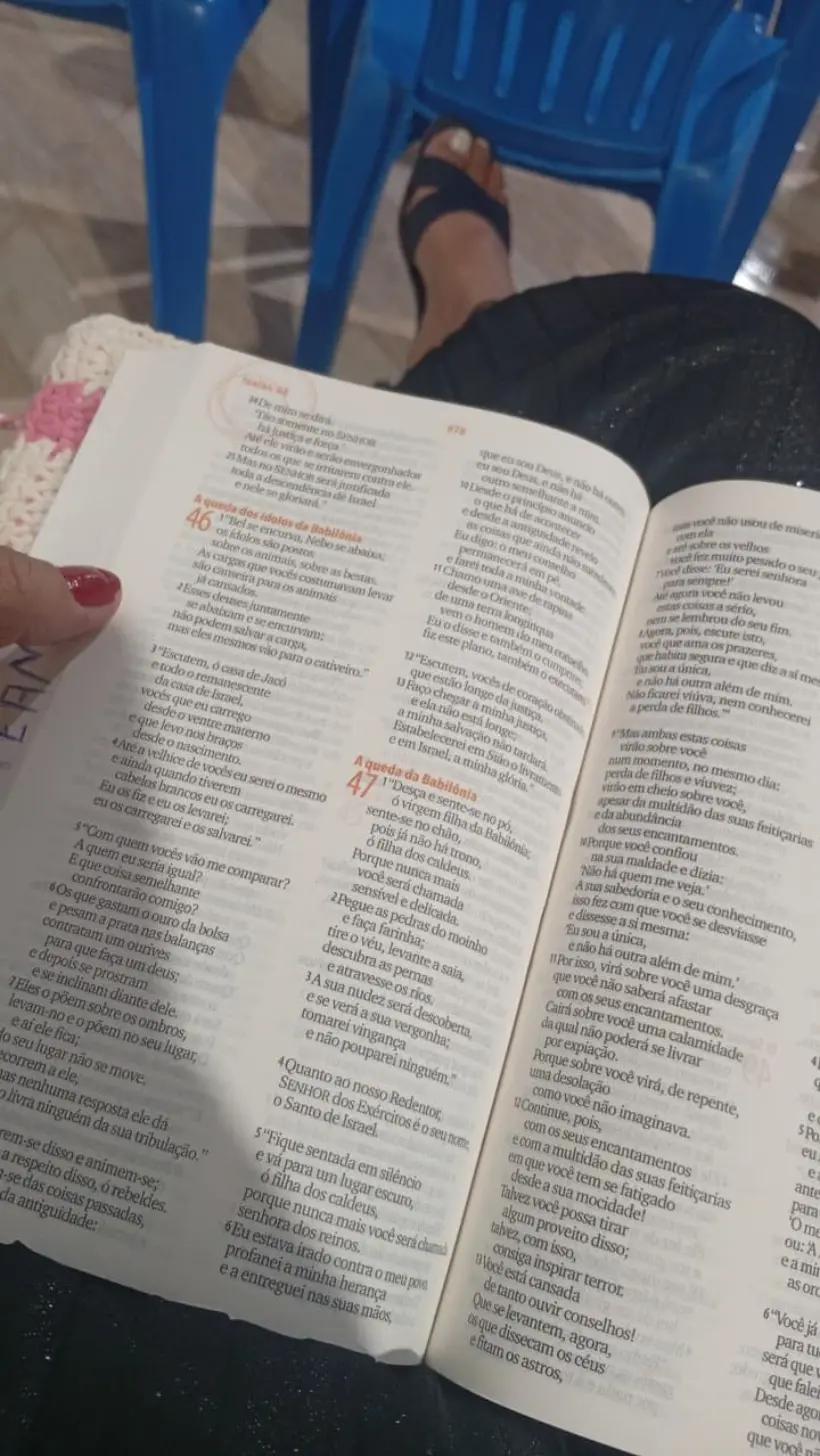 Isaías 46
678
24 De mim se dirá:
"Tão somente no SENHOR
há justiça e força."
Até ele virão e serão envergonhados
todos os que se irritarem contra ele.
25 Mas no SENHOR será justificada
toda a descendência de Israel
e nele se gloriará."
A queda dos ídolos da Babilônia
46 1 "Bel se encurva, Nebo se abaixa;
os ídolos são postos
sobre os animais, sobre as bestas.
As cargas que vocês costumavam levar
são canseira para os animais
já cansados.
2 Esses deuses juntamente
se abaixam e se encurvam;
não podem salvar a carga,
mas eles mesmos vão para o cativeiro."
3 "Escutem, ó casa de Jacó
e todo o remanescente
da casa de Israel,
vocês que eu carrego
desde o ventre materno
e que levo nos braços
desde o nascimento.
4 Até a velhice de vocês eu serei o mesmo
e ainda quando tiverem
cabelos brancos eu os carregarei.
Eu os fiz e eu os levarei;
eu os carregarei e os salvarei."
5 "Com quem vocês vão me comparar?
A quem eu seria igual?
E que coisa semelhante
confrontarão comigo?
6 Os que gastam o ouro da bolsa
e pesam a prata nas balanças
contratam um ourives
para que faça um deus;
e depois se prostram
e se inclinam diante dele.
7 Eles o põem sobre os ombros,
levam-no e o põem no seu lugar,
e aí ele fica;
do seu lugar não se move.
recorrem a ele,
mas nenhuma resposta ele dá
livra ninguém da sua tribulação."
disso e animem-se;
a respeito disso, ó rebeldes.
das coisas passadas,
da antiguidade:
que eu sou Deus, e não há outro,
eu sou Deus, e não há
outro semelhante a mim.
10 Desde o princípio anuncio
o que há de acontecer
e desde a antiguidade revelo
as coisas que ainda não
Eu digo: o meu conselho
permanecerá em pé,
e farei toda a minha vontade.
11 Chamo uma ave de rapina
desde o Oriente;
de uma terra longínqua
vem o homem do meu conselho.
Eu o disse e também o cumprirei;
fiz este plano, também o executarei."
12 "Escutem, vocês de coração obstinado,
que estão longe da justiça.
13 Faço chegar a minha justiça,
e ela não está longe;
a minha salvação não tardará.
Estabelecerei em Sião o livramento
e em Israel, a minha glória."
A queda da Babilônia
47 1 "Desça e sente-se no pó,
ó virgem filha da Babilônia;
sente-se no chão,
pois já não há trono,
ó filha dos caldeus.
Porque nunca mais
você será chamada
sensível e delicada.
2 Pegue as pedras do moinho
e faça farinha;
tire o véu, levante a saia,
descubra as pernas
e atravesse os rios.
3 A sua nudez será descoberta,
e se verá a sua vergonha;
tomarei vingança
e não pouparei ninguém."
4 Quanto ao nosso Redentor,
SENHOR dos Exércitos é o seu nome,
o Santo de Israel.
5 "Fique sentada em silêncio
e vá para um lugar escuro,
ó filha dos caldeus,
porque nunca mais você será chamada
senhora dos reinos.
6 Eu estava irado contra o meu povo,
profanei a minha herança
e a entreguei nas suas mãos,
mas você não usou de
com ela
e até sobre os velhos
você fez muito pesado o seu
7 Você disse: 'Eu serei senhora
para sempre!'
Até agora você não levou
estas coisas a sério,
nem se lembrou do seu fim.
8 Agora, pois, escute isto,
você que ama os prazeres,
que habita segura e que diz a si
'Eu sou a única,
e não há outra além de mim.
Não ficarei viúva, nem conhecerei
a perda de filhos.'"
9 "Mas ambas estas coisas
virão sobre você
num momento, no mesmo dia:
perda de filhos e viuvez;
virão em cheio sobre você,
apesar da multidão das suas feitiçarias
e da abundância
dos seus encantamentos.
10 Porque você confiou
na sua maldade e dizia:
'Não há quem me veja.'
A sua sabedoria e o seu conhecimento,
isso fez com que você se desviasse
e dissesse a si mesma:
'Eu sou a única,
e não há outra além de mim.'
11 Por isso, virá sobre você uma desgraça
que você não saberá afastar
com os seus encantamentos.
Cairá sobre você uma calamidade
da qual não poderá se livrar
por expiação.
Porque sobre você virá, de repente,
uma desolação
como você não imaginava.
12 Continue, pois,
com os seus encantamentos
e com a multidão das suas feitiçarias
em que você tem se fatigado
desde a sua mocidade!
Talvez você possa tirar
algum proveito disso;
talvez, com isso,
consiga inspirar terror.
13 Você está cansada
de tanto ouvir conselhos!
Que se levantem, agora,
os que dissecam os céus
e fitam os astros,
ante
para
'O me
ou: 'A
e a min
as ord
6 "Você já
para tu
será que v
que falei
Desde agor
coisas nov
que você n